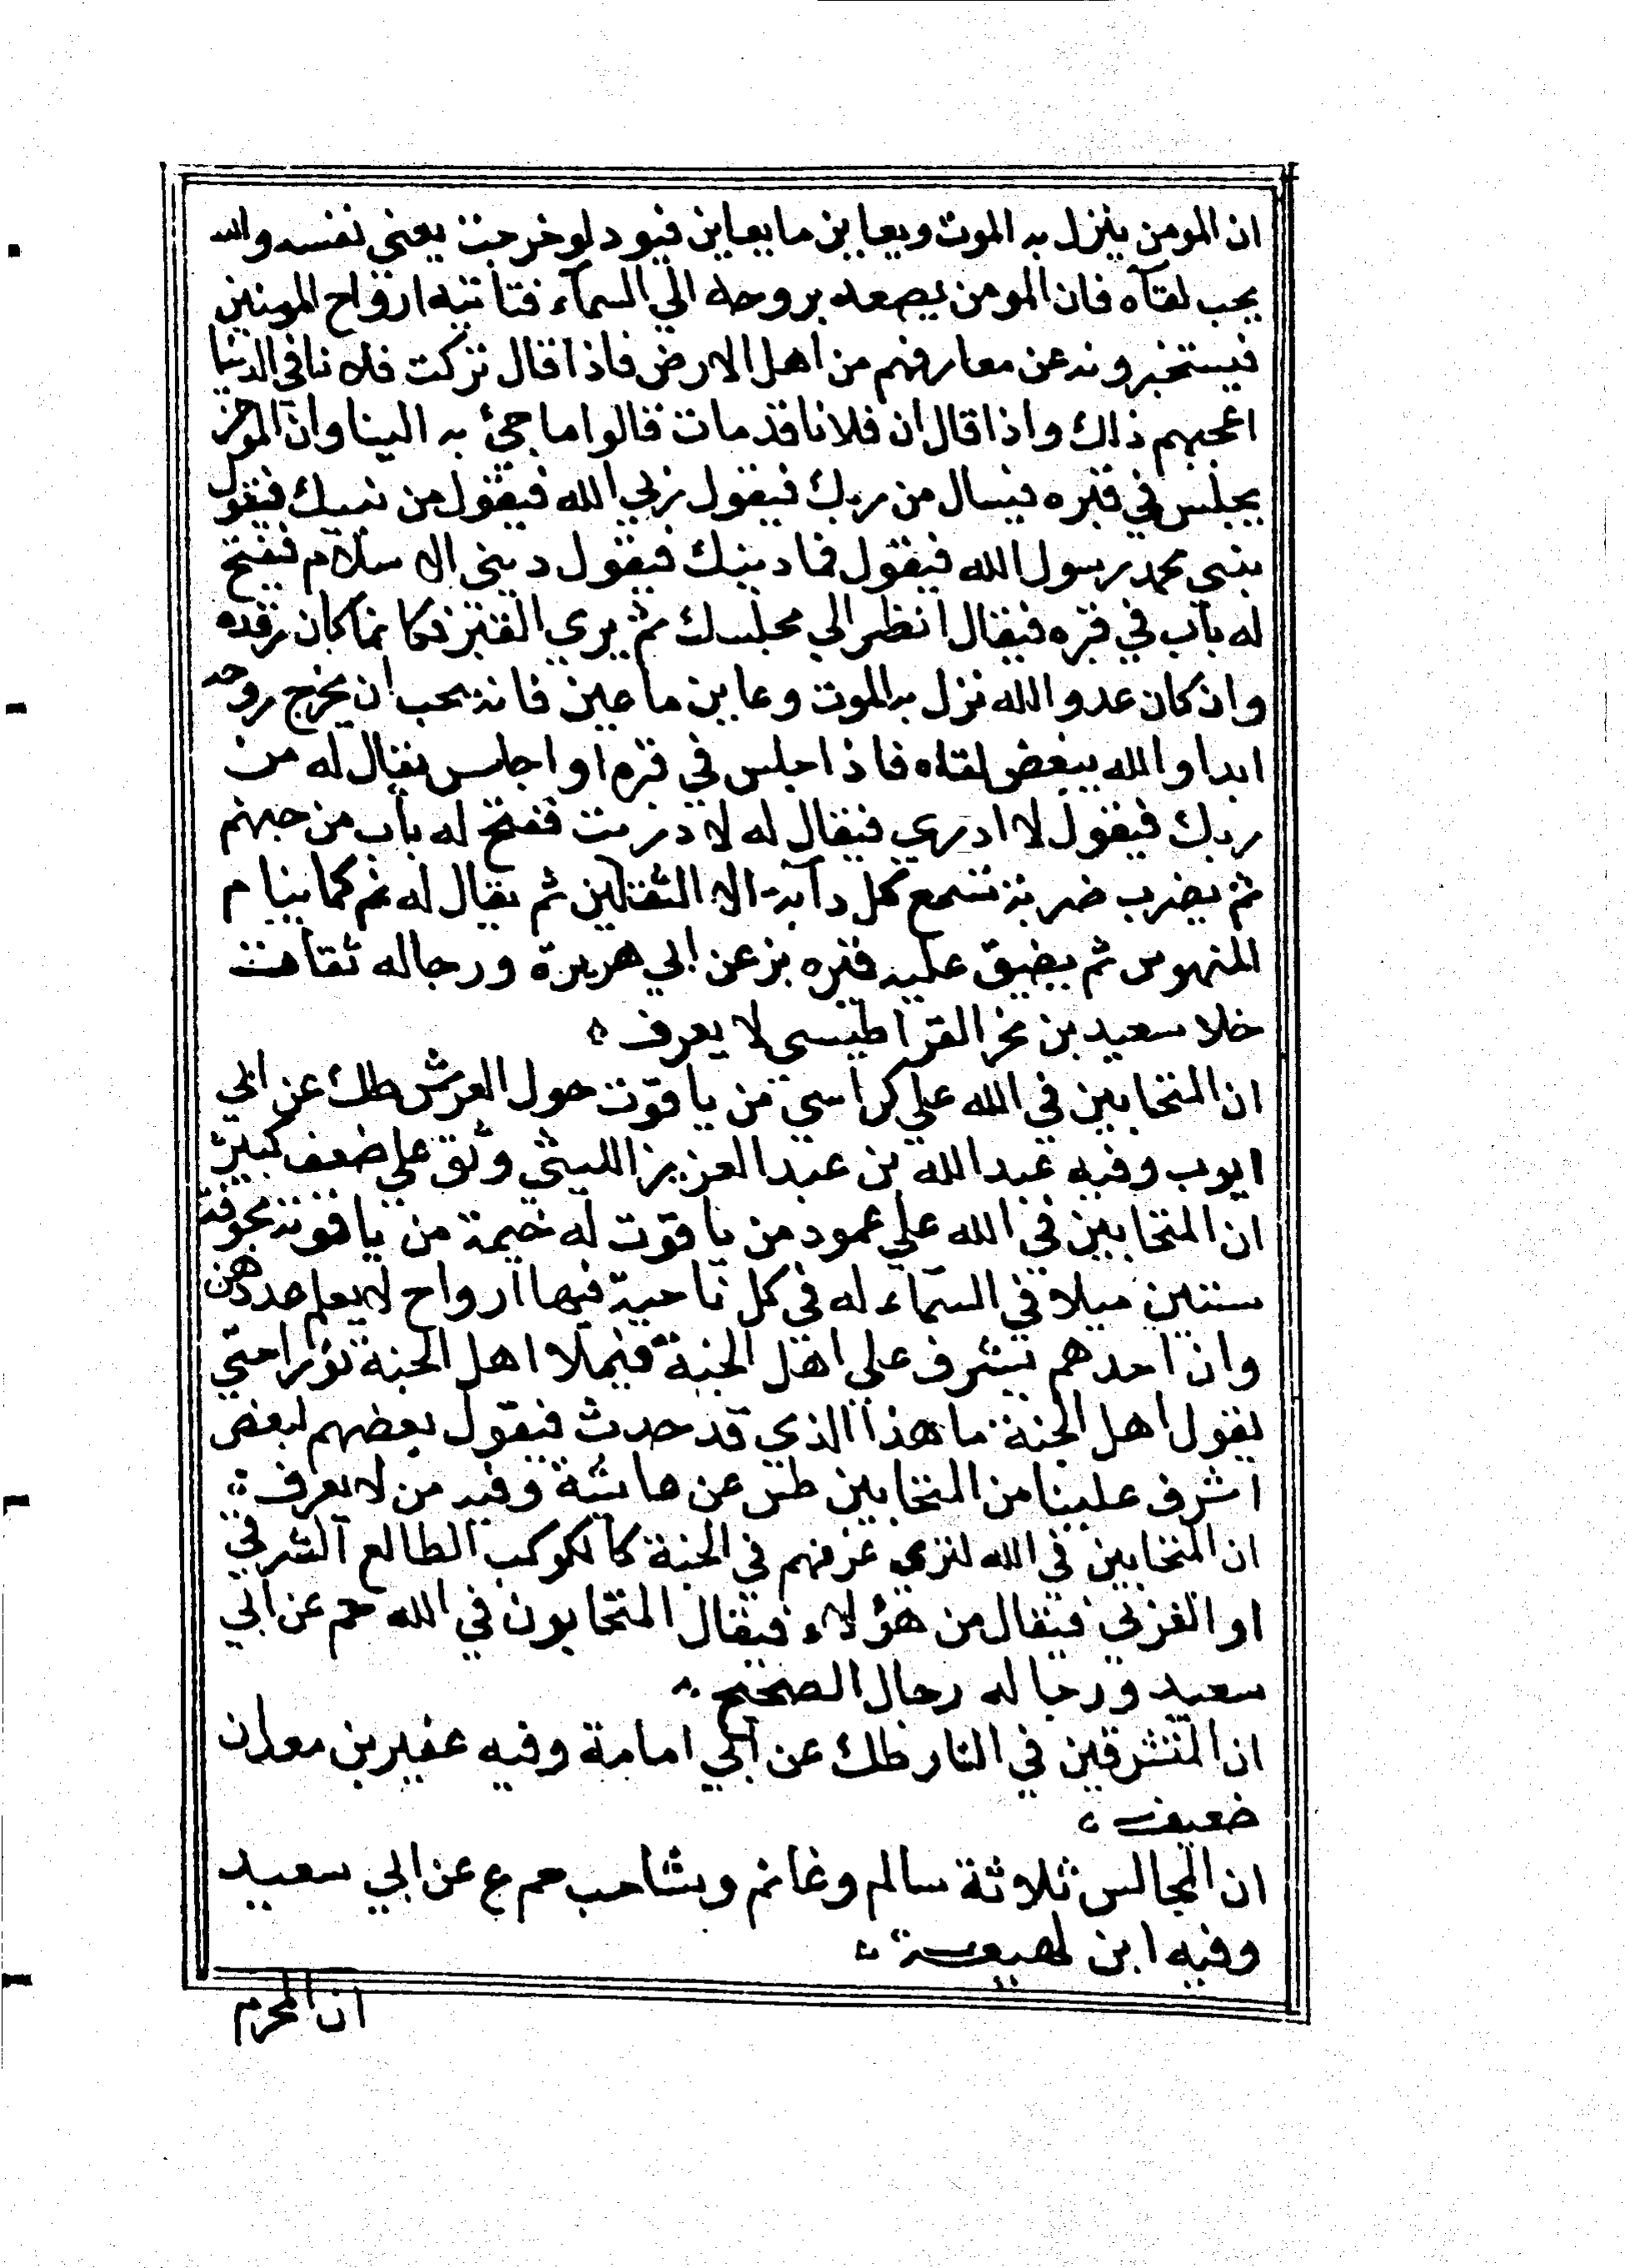 ان المومن ينزل به الموت ويعاين ما يعاين فيود لو خرجت يعني نفسه والله
يحب لقآه فان المومن يصعد بروحه الي السمآء فتاتيه ارواح المومنين
فيستخبرونه عن معارفهم من اهل الارض فاذا قال تركت فلانا في الدنيا
اعجبهم ذلك واذا قال ان فلانا قد مات قالوا ما جئ به الينا وان المومن
يجلس في قبره فيسال من ربك فيقول ربي الله فيقول من نبيك فيقول
نبيي محمد رسول الله فيقول فما دينك فيقول ديني الاسلام فيفتح
له باب في قبره فيقال انظر الي مجلسك ثم يري القبر فكانما كان رقده
واذ كان عدو الله نزل به الموت وعاين ما عين فانه يحب ان يخرج روحه
ابدا والله يبغض لقاه فاذا جلس في قبره او اجلس يقال له من
ربك فيقول لا ادري فيقال له لا دريت ففتح له باب من جهنم
ثم يضرب ضربة تسمع كل دآبة الا الثقلين ثم يقال له نم كما ينام
المنهوس ثم يضيق عليه قبره بز عن ابي هريرة ورجاله ثقات
خلا سعيد بن بحر القراطيسي لا يعرف
ان المتحابين في الله علي كراسي من ياقوت حول العرش طك عن ابي
ايوب وفيه عبد الله بن عبد العزيز الليثي وثق علي ضعف كبير
ان المتحابين في الله علي عمود من ياقوت له خيمة من ياقوتة مجوفة
ستين ميلا في السمآء له في كل ناحية فيها ارواح لا يعلم عددهن
وان احدهم يشرف علي اهل الجنة فيملا اهل الجنة نورا حتي
يقول اهل الجنة ما هذا الذي قد حدث فيقول بعضهم لبعض
اشرف علينا من المتحابين طس عن عائشة وفيه من لا يعرف
ان المتحابين في الله لتري غرفهم في الجنة كالكوكب الطالع الشرقي
او الغربي فيقال من هؤلاء فيقال المتحابون في الله حم عن ابي
سعيد ورجاله رجال الصحيح
ان المتشرقين في النار طك عن ابي امامة وفيه عفير بن معدان
ضعيف
ان المجالس ثلاثة سالم وغانم وشاحب حم ع عن ابي سعيد
وفيه ابن لهيعة
ان المحرم